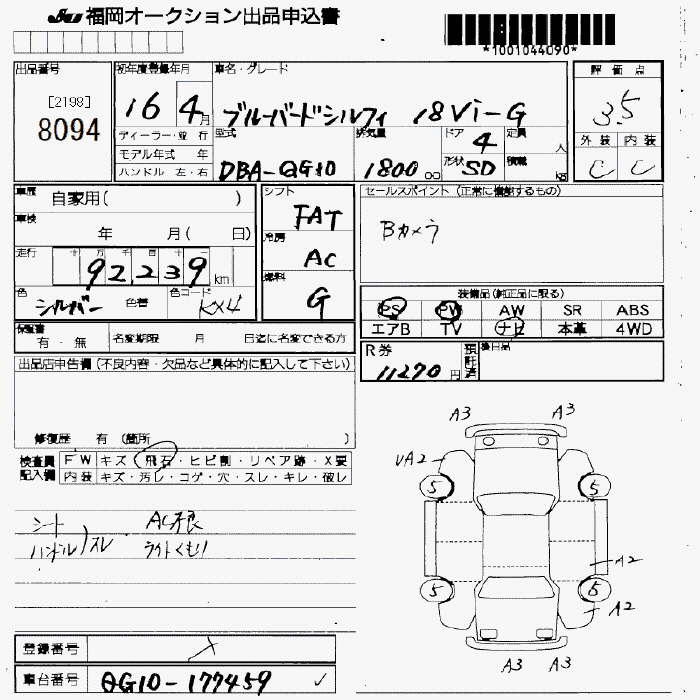 Jus 福岡オークション出品申込書
*1001044090*
出品番号
[2198]
8094
初年度登録年月
16 4月
車名・グレード
ブルーバードシルフィ 18Vi-G
評価点
3.5
ディーラー・並行
モデル年式 年
ハンドル 左・右
型式
DBA-QG10
排気量
1800 cc
ドア
4
形状 SD
定員
人
積載
kg
外装 内装
C C
車歴
自家用( )
車検
年 月( 日)
走行
十 万 千 百 十
92,239 km
色
シルバー 色替
色コード
KX4
シフト
FAT
冷房
AC
燃料
G
セールスポイント (正常に機能するもの)
Bカメラ
装備品(純正品に限る)
PS PW AW SR ABS
エアB TV ナビ 本革 4WD
保証書
有・無
名変期限 月 日迄に名変できる方
R券
11270円
預託済
後日品
出品店申告欄(不良内容・欠品など具体的に記入して下さい)
修復歴 有 (箇所 )
検査員記入欄
FW キズ・飛石・ヒビ割・リペア跡・X要
内装 キズ・汚レ・コゲ・穴・スレ・キレ・破レ
シート
ハンドル
スレ
AC根
ライトくもり
A3 A3
UA2
5 5
A2
5 5
A2
A3 A3
登録番号
車台番号
QG10-177459 ✓